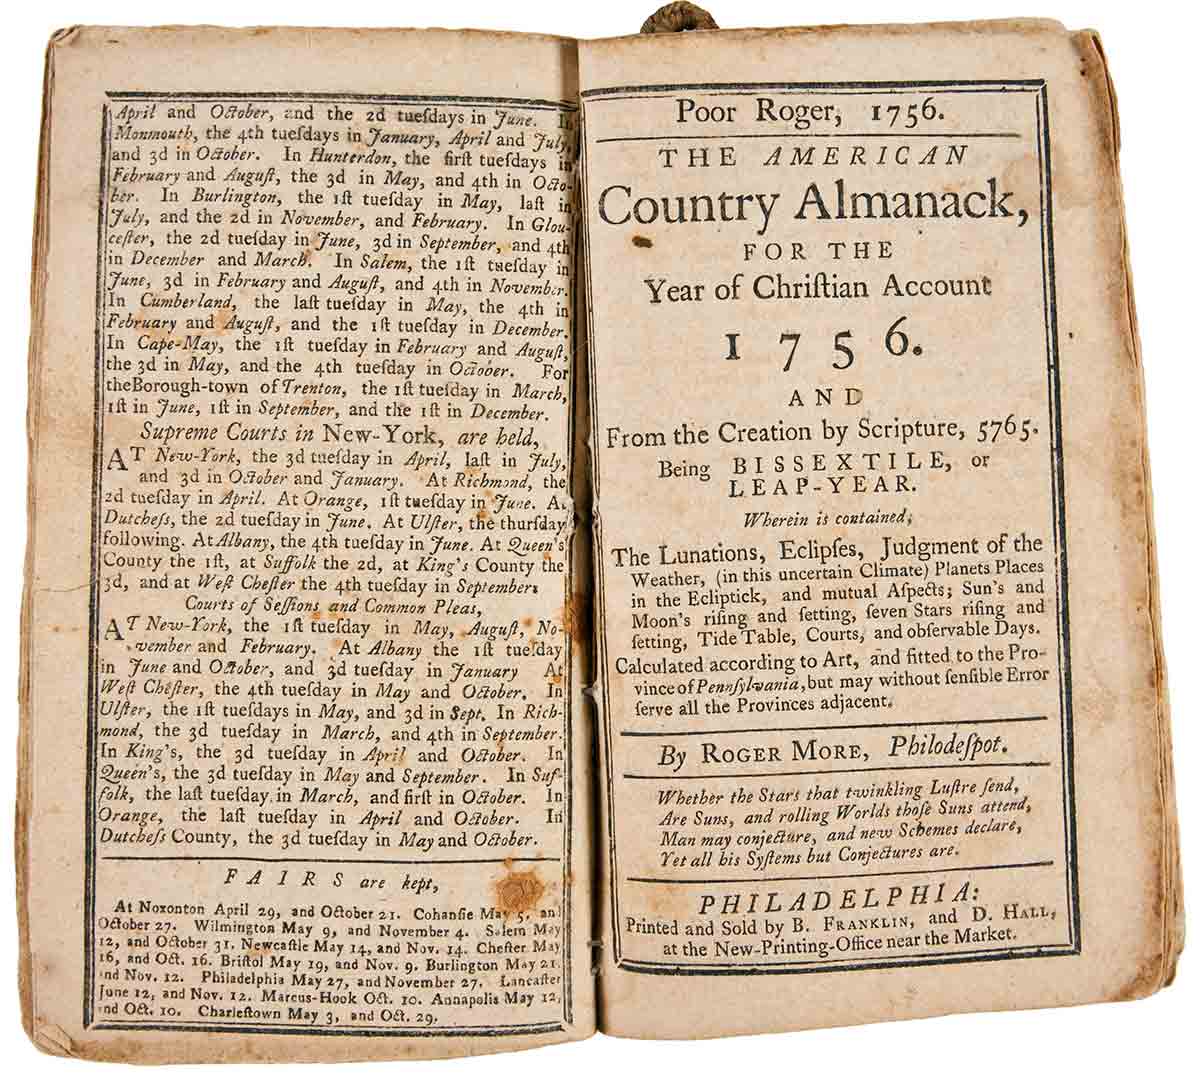 April and October, and the 2d tueſdays in June. In
Monmouth, the 4th tueſdays in January, April and July,
and 3d in October. In Hunterdon, the firſt tueſdays in
February and Auguſt, the 3d in May, and 4th in Octo-
ber. In Burlington, the 1ſt tueſday in May, laſt in
July, and the 2d in November, and February. In Glou-
ceſter, the 2d tueſday in June, 3d in September, and 4th
in December and March. In Salem, the 1ſt tueſday in
June, 3d in February and Auguſt, and 4th in November.
In Cumberland, the laſt tueſday in May, the 4th in
February and Auguſt, and the 1ſt tueſday in December.
In Cape-May, the 1ſt tueſday in February and Auguſt,
the 3d in May, and the 4th tueſday in October. For
theBorough-town of Trenton, the 1ſt tueſday in March,
1ſt in June, 1ſt in September, and the 1ſt in December.
Supreme Courts in New-York, are held,
AT New-York, the 3d tueſday in April, laſt in July,
and 3d in October and January. At Richmond, the
2d tueſday in April. At Orange, 1ſt tueſday in June. At
Dutcheſs, the 2d tueſday in June. At Ulſter, the thurſday
following. At Albany, the 4th tueſday in June. At Queen's
County the 1ſt, at Suffolk the 2d, at King's County the
3d, and at Weſt Cheſter the 4th tueſday in September.
Courts of Seſſions and Common Pleas,
AT New-York, the 1ſt tueſday in May, Auguſt, No-
vember and February. At Albany the 1ſt tueſday
in June and October, and 3d tueſday in January At
Weſt Cheſter, the 4th tueſday in May and October. In
Ulſter, the 1ſt tueſdays in May, and 3d in Sept. In Rich-
mond, the 3d tueſday in March, and 4th in September.
In King's, the 3d tueſday in April and October. In
Queen's, the 3d tueſday in May and September. In Suf-
folk, the laſt tueſday in March, and firſt in October. In
Orange, the laſt tueſday in April and October. In
Dutcheſs County, the 3d tueſday in May and October.
FAIRS are kept,
At Noxonton April 29, and October 21. Cohanſie May 5, and
October 27. Wilmington May 9, and November 4. Salem May
12, and October 31. Newcaſtle May 14, and Nov. 14. Cheſter May
16, and Oct. 16. Briſtol May 19, and Nov. 9. Burlington May 21.
and Nov. 12. Philadelphia May 27, and November 27. Lancaſter
June 12, and Nov. 12. Marcus-Hook Oct. 10. Annapolis May 12,
and Oct. 10. Charleſtown May 3, and Oct. 29.
Poor Roger, 1756.
THE AMERICAN
Country Almanack,
FOR THE
Year of Chriſtian Account
1756.
AND
From the Creation by Scripture, 5765.
Being BISSEXTILE, or
LEAP-YEAR.
Wherein is contained,
The Lunations, Eclipſes, Judgment of the
Weather, (in this uncertain Climate) Planets Places
in the Ecliptick, and mutual Aſpects; Sun's and
Moon's riſing and ſetting, ſeven Stars riſing and
ſetting, Tide Table, Courts, and obſervable Days.
Calculated according to Art, and fitted to the Pro-
vince of Pennſylvania, but may without ſenſible Error
ſerve all the Provinces adjacent.
By ROGER MORE, Philodeſpot.
Whether the Stars that twinkling Luſtre ſend,
Are Suns, and rolling Worlds thoſe Suns attend,
Man may conjecture, and new Schemes declare,
Yet all his Syſtems but Conjectures are.
PHILADELPHIA:
Printed and Sold by B. FRANKLIN, and D. HALL,
at the New-Printing-Office near the Market.